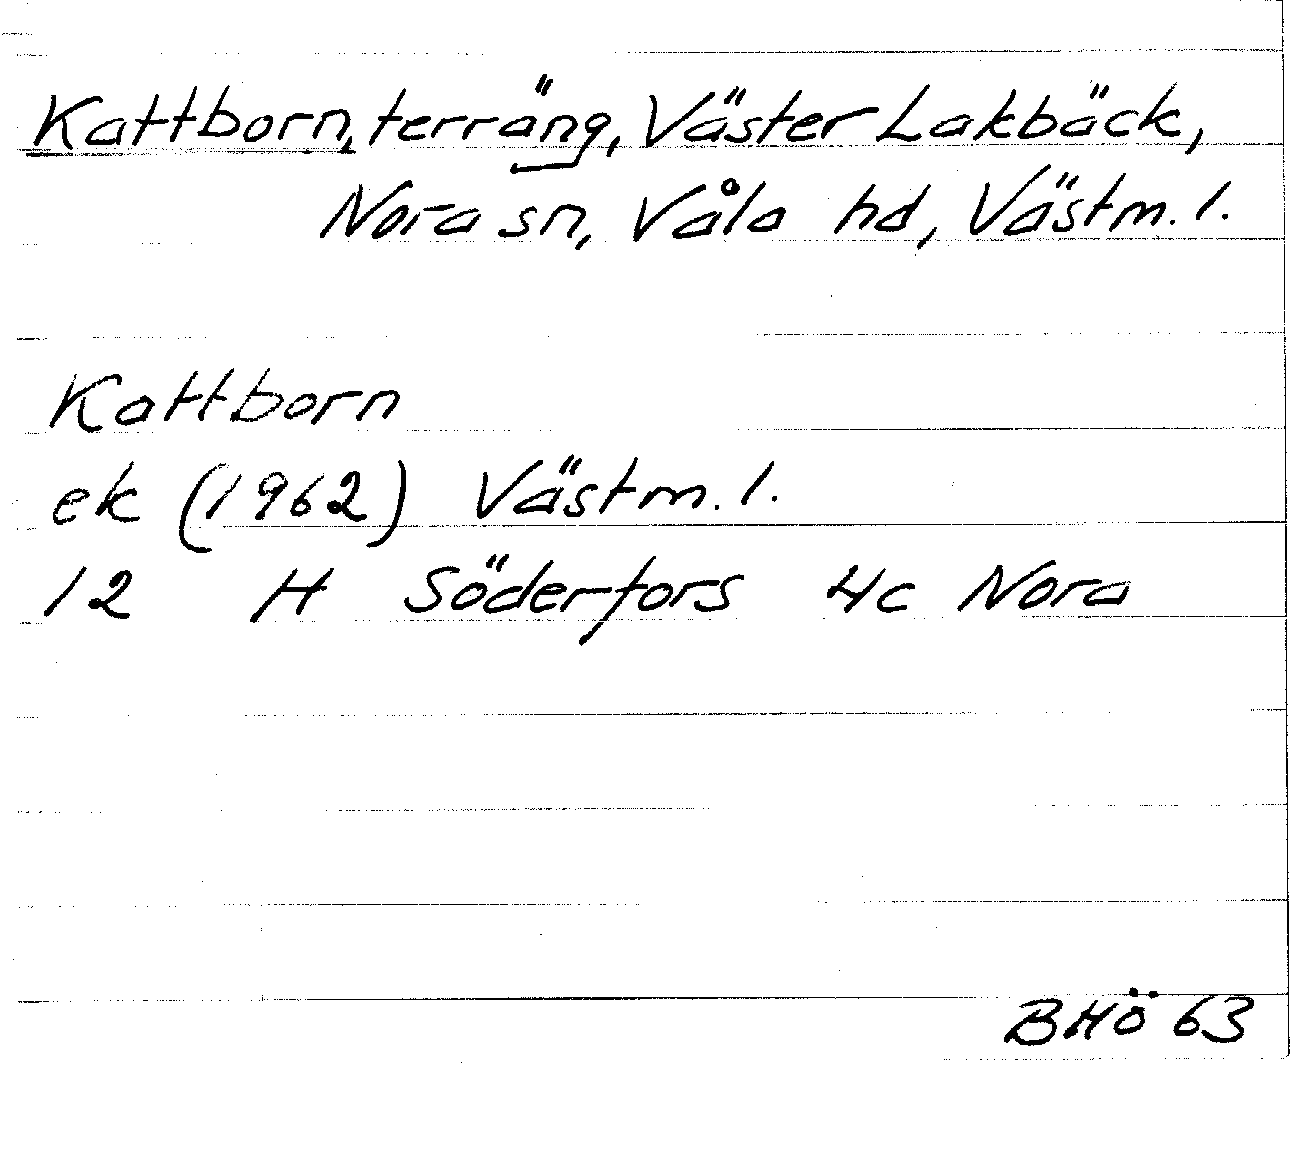 Kattborn, terräng, Väster Lakbäck,
Nora sn, Våla hd, Västm. l.
Kattborn
ek (1962) Västm. l.
12 H Söderfors 4c Nora
BHö 63